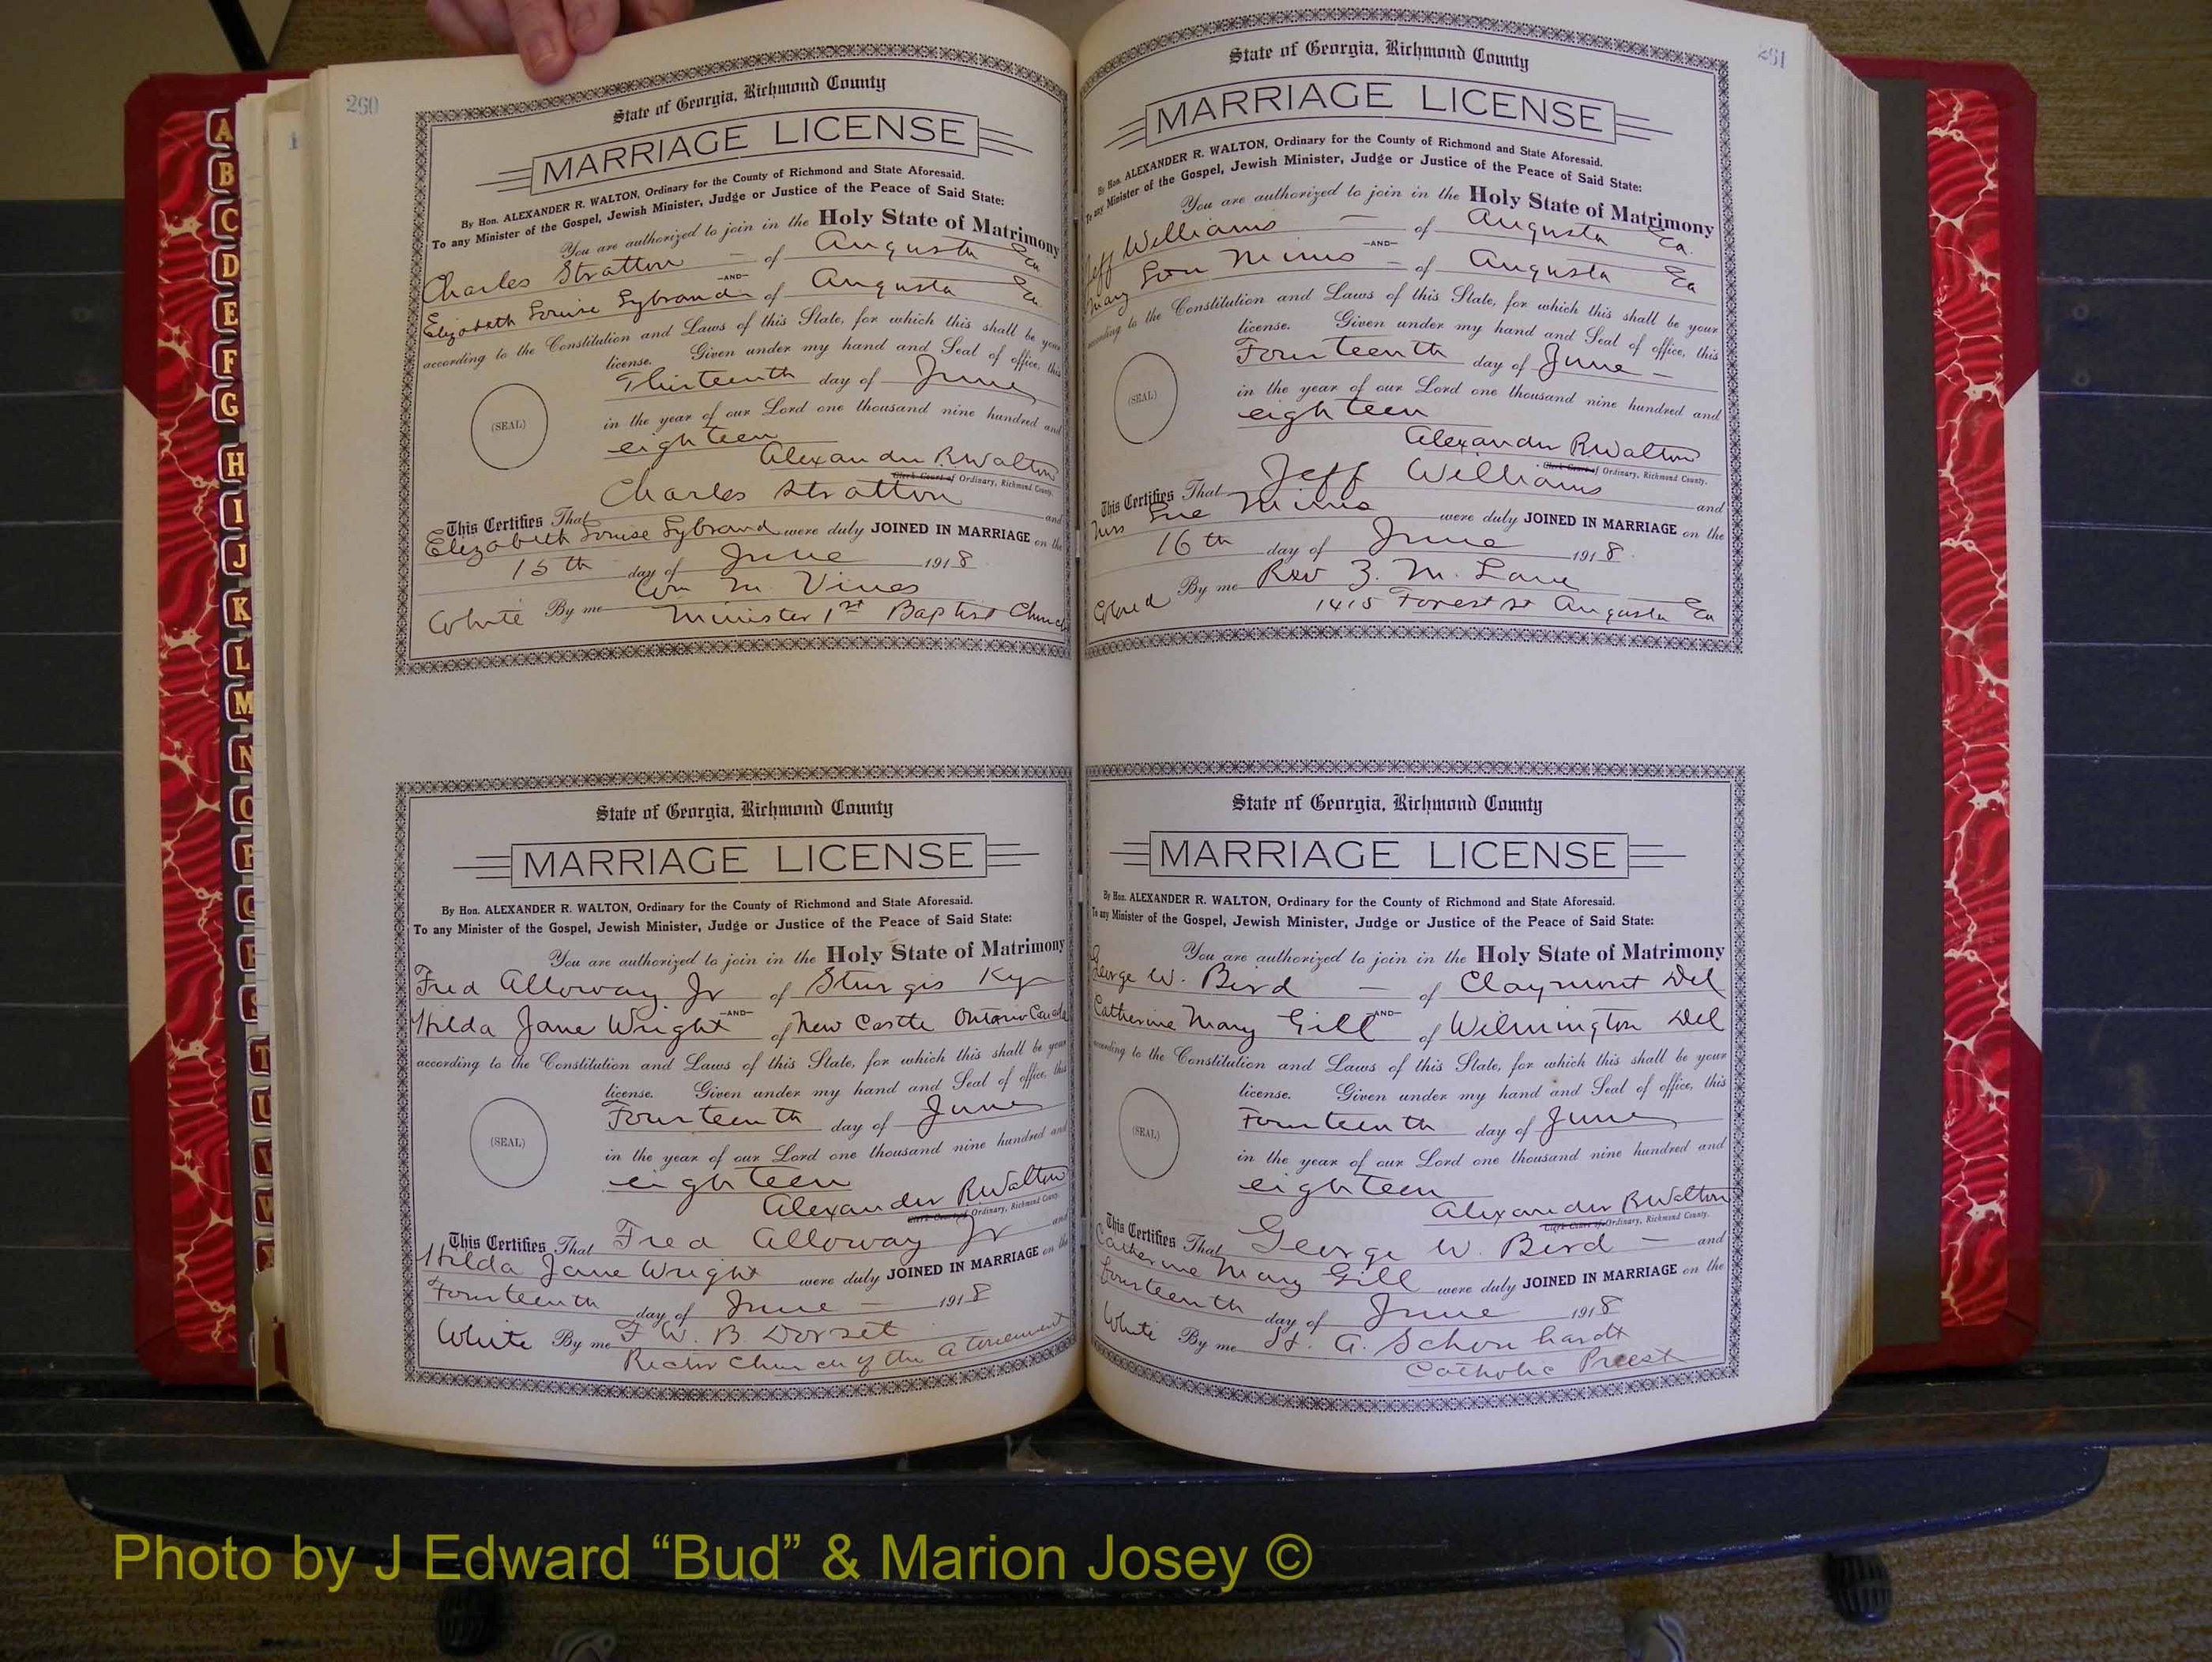 260
State of Georgia, Richmond County
MARRIAGE LICENSE
By Hon. ALEXANDER R. WALTON, Ordinary for the County of Richmond and State Aforesaid.
To any Minister of the Gospel, Jewish Minister, Judge or Justice of the Peace of Said State:
You are authorized to join in the Holy State of Matrimony
Charles Stratton — of Augusta Ga
—AND—
Elizabeth Louise Sybrandt of Augusta Ga.
according to the Constitution and Laws of this State, for which this shall be your
license. Given under my hand and Seal of office, this
Thirteenth day of June
(SEAL)
in the year of our Lord one thousand nine hundred and
eighteen
Alexander R Walton
Clerk Court of Ordinary, Richmond County.
This Certifies That Charles Stratton and
Elizabeth Louise Sybrand were duly JOINED IN MARRIAGE on the
15 th day of June 1918
White By me Wm M. Vines
Minister 1st Baptist Church
State of Georgia, Richmond County
MARRIAGE LICENSE
By Hon. ALEXANDER R. WALTON, Ordinary for the County of Richmond and State Aforesaid.
To any Minister of the Gospel, Jewish Minister, Judge or Justice of the Peace of Said State:
You are authorized to join in the Holy State of Matrimony
Fred Alloway Jr of Sturgis Ky
—AND—
Hilda Jane Wright of New Castle Ontario Canada
according to the Constitution and Laws of this State, for which this shall be your
license. Given under my hand and Seal of office, this
Fourteenth day of June
(SEAL)
in the year of our Lord one thousand nine hundred and
eighteen
Alexander R Walton
Clerk Court of Ordinary, Richmond County.
This Certifies That Fred Alloway Jr and
Hilda Jane Wright were duly JOINED IN MARRIAGE on the
Fourteenth day of June — 1918
White By me W. B. Dorset
Rector Church of the Atonement
261
State of Georgia, Richmond County
MARRIAGE LICENSE
By Hon. ALEXANDER R. WALTON, Ordinary for the County of Richmond and State Aforesaid.
To any Minister of the Gospel, Jewish Minister, Judge or Justice of the Peace of Said State:
You are authorized to join in the Holy State of Matrimony
Jeff Williams — of Augusta Ga.
—AND—
Mary Lou Mims — of Augusta Ga
according to the Constitution and Laws of this State, for which this shall be your
license. Given under my hand and Seal of office, this
Fourteenth day of June —
(SEAL)
in the year of our Lord one thousand nine hundred and
eighteen
Alexander R Walton
Clerk Court of Ordinary, Richmond County.
This Certifies That Jeff Williams and
Miss Sue Mims were duly JOINED IN MARRIAGE on the
16 th day of June 1918.
Colored By me Rev Z. M. Lane
1415 Forest st Augusta Ga
State of Georgia, Richmond County
MARRIAGE LICENSE
By Hon. ALEXANDER R. WALTON, Ordinary for the County of Richmond and State Aforesaid.
To any Minister of the Gospel, Jewish Minister, Judge or Justice of the Peace of Said State:
You are authorized to join in the Holy State of Matrimony
George W. Bird — of Claymont Del
—AND—
Catherine Mary Gill of Wilmington Del
according to the Constitution and Laws of this State, for which this shall be your
license. Given under my hand and Seal of office, this
Fourteenth day of June
(SEAL)
in the year of our Lord one thousand nine hundred and
eighteen
Alexander R Walton
Clerk Court of Ordinary, Richmond County.
This Certifies That George W. Bird — and
Catherine Mary Gill were duly JOINED IN MARRIAGE on the
Fourteenth day of June 1918
White By me H. A. Schonhardt
Catholic Priest
A
B
C
D
E
F
G
H
I
J
K
L
M
N
O
P
Q
R
S
T
U
Photo by J Edward “Bud” & Marion Josey ©